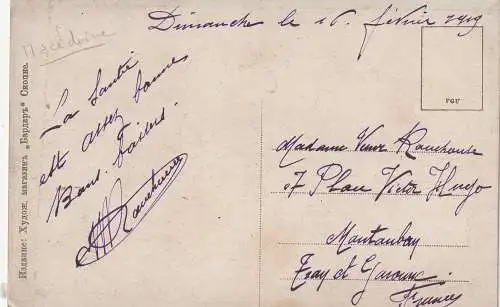 Macédoine
Dimanche le 16 février 1919
La Santé
est assez bonne
Bons Baisers.
PGU
Madame Veuve
Place Victor Hugo
Montauban
Tarn et Garonne
France
Издание: Худож. магазинъ „Вардаръ“ Скопие.